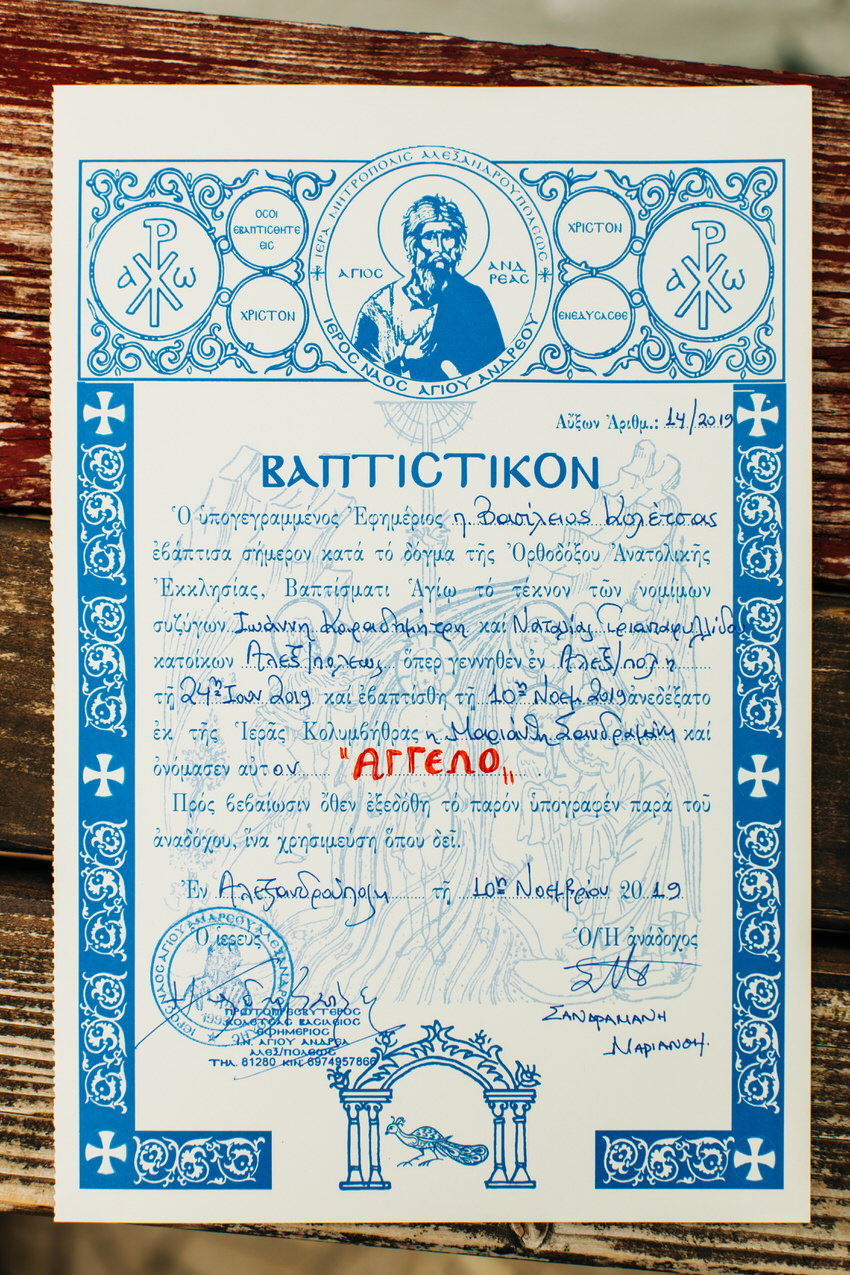 ΙΕΡΑ ΜΗΤΡΟΠΟΛΙΣ ΑΛΕΞΑΝΔΡΟΥΠΟΛΕΩΣ
ΟΣΟΙ
ΕΒΑΠΤΙΣΘΗΤΕ
ΕΙΣ
ΧΡΙΣΤΟΝ
ΑΓΙΟΣ
ΑΝΔ
ΡΕΑΣ
ΙΕΡΟΣ ΝΑΟΣ ΑΓΙΟΥ ΑΝΔΡΕΟΥ
ΧΡΙΣΤΟΝ
ΕΝΕΔΥΣΑΣΘΕ
α ω
α ω
Αὔξων Ἀριθμ.: 14/2019
ΒΑΠΤΙΣΤΙΚΟΝ
Ὁ ὑπογεγραμμένος Ἐφημέριος π. Βασίλειος Κολέτσας
ἐβάπτισα σήμερον κατά τό δόγμα τῆς Ὀρθοδόξου Ἀνατολικῆς
Ἐκκλησίας, Βαπτίσματι Ἁγίῳ τό τέκνον τῶν νομίμων
συζύγων Ιωάννη Καραδημήτρη καί Ναταλίας
κατοίκων Αλεξ/πολεως ὅπερ γεννηθέν ἐν Αλεξ/πολη
τῇ 24η Ιουν 2019 καί ἐβαπτίσθη τῇ 10η Νοεμ 2019 ἀνεδέξατο
ἐκ τῆς Ἱερᾶς Κολυμβήθρας η Μαριάνθη Σανδραμάνη καί
ὀνόμασεν αὐτον "ΑΓΓΕΛΟ" .
Πρός βεβαίωσιν ὅθεν ἐξεδόθη τό παρόν ὑπογραφέν παρά τοῦ
ἀναδόχου, ἵνα χρησιμεύσῃ ὅπου δεῖ.
Ἐν Αλεξανδρούπολη τῇ 10η Νοεμβρίου 2019
Ὁ ἱερεύς
Ὁ/Ἡ ἀνάδοχος
ΙΕΡΟΣ ΝΑΟΣ ΑΓΙΟΥ ΑΝΔΡΕΟΥ
1995
ΠΡΩΤΟΠΡΕΣΒΥΤΕΡΟΣ
ΚΟΛΕΤΣΑΣ ΒΑΣΙΛΕΙΟΣ
ΕΦΗΜΕΡΙΟΣ
Ι.Ν. ΑΓΙΟΥ ΑΝΔΡΕΑ
ΑΛΕΞ/ΠΟΛΕΩΣ
ΤΗΛ. 81280 ΚΙΝ. 6974957866
ΣΑΝΔΡΑΜΑΝΗ
ΜΑΡΙΑΝΘΗ